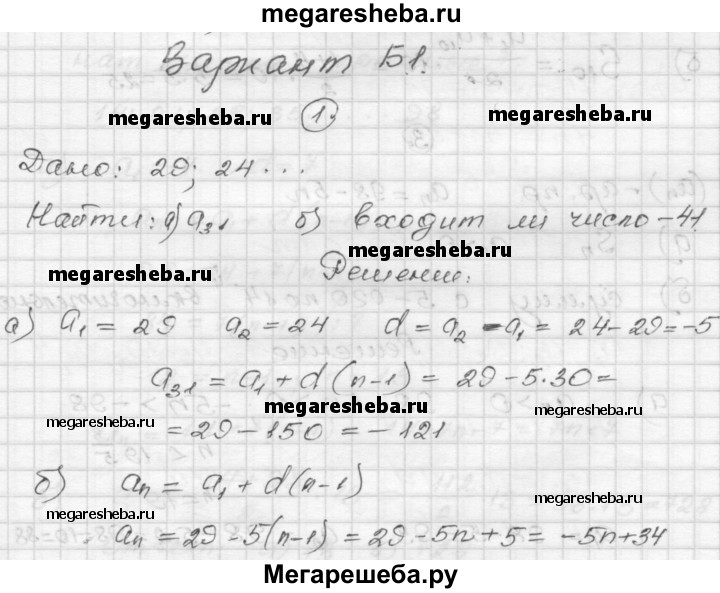 megaresheba.ru
Вариант Б1.
megaresheba.ru
1.
megaresheba.ru
Дано: 29; 24...
Найти: а) a₃₁ б) входит ли число -41.
megaresheba.ru
Решение:
megaresheba.ru
а) a₁ = 29 a₂ = 24 d = a₂ - a₁ = 24-29 = -5
a₃₁ = a₁ + d(n-1) = 29 - 5·30 =
megaresheba.ru
megaresheba.ru
megaresheba.ru
= 29 - 150 = -121
б) aₙ = a₁ + d(n-1)
megaresheba.ru
megaresheba.ru
aₙ = 29 - 5(n-1) = 29 - 5n + 5 = -5n+34
Мегарешеба.ру